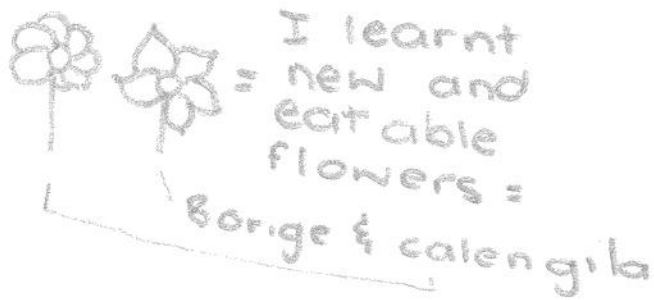 = I learnt
new and
eatable
flowers =
Borige & calengila